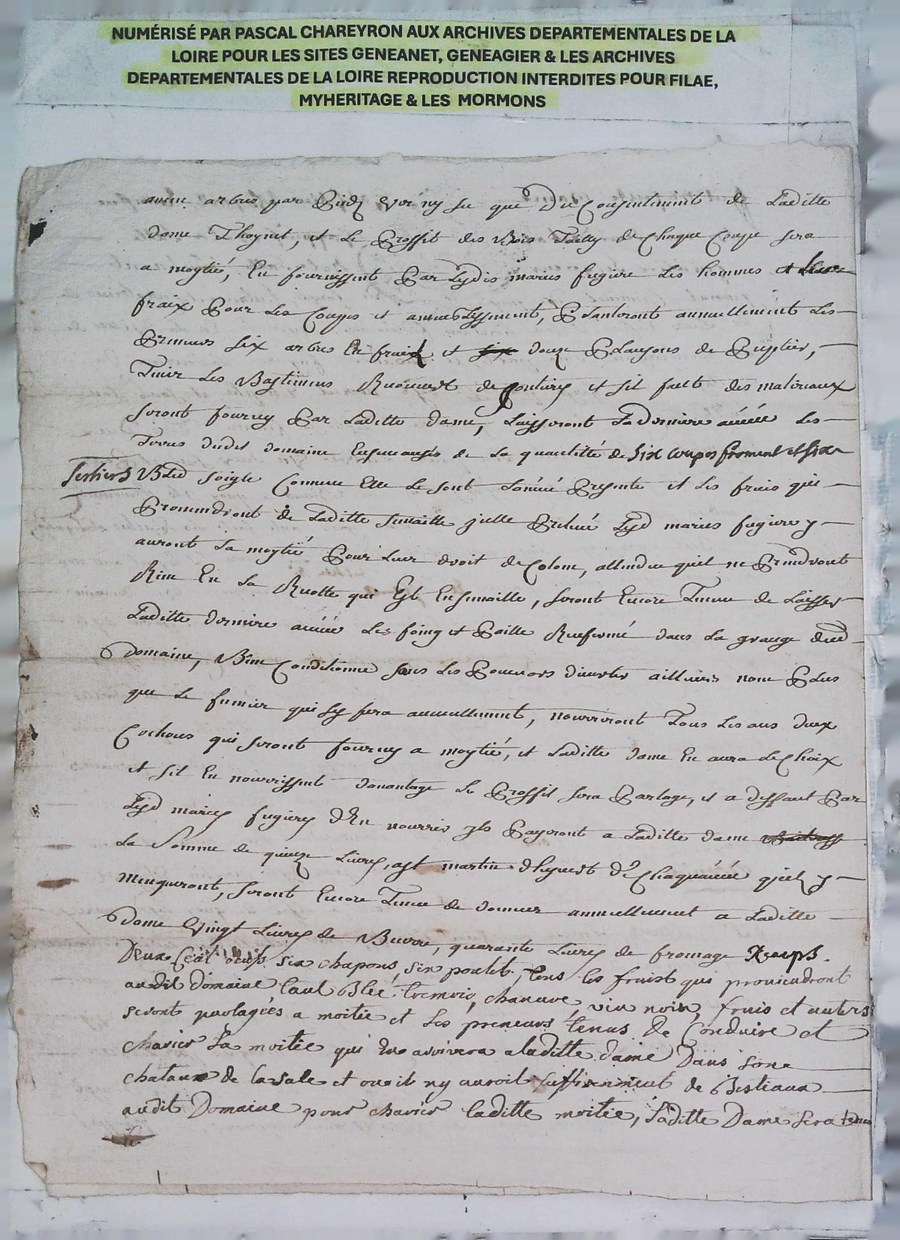 NUMÉRISÉ PAR PASCAL CHAREYRON AUX ARCHIVES DEPARTEMENTALES DE LA
LOIRE POUR LES SITES GENEANET, GENEAGIER & LES ARCHIVES
DEPARTEMENTALES DE LA LOIRE REPRODUCTION INTERDITES POUR FILAE,
MYHERITAGE & LES MORMONS
arbres par que du Consentiment de Laditte
dame Thoynet, et Le Proffit des Bois Tailly de Chaque Coupe sera
a moytié, En fournissent Par Lesdis maries fugiere Les hommes et
fraix Pour Les Coupes et, Planteront annuellement Les
Preneurs six arbres En fruit et douze Plansons de Peuplier,
Tenir Les Bastimens et sil fault des materiaux
seront fourny Par Laditte dame, Laisseront La derniere année Les
Terres dudit domaine Ensemensés de La quantitté de six coupes froment et six
sestiers Bled soigle Comme Elle Le sont Lannée Presente et Les fruis qui
Proviendront de Laditte semaille Lesd maries fugiere y
auront La moytié Pour Leur droit de Colon, attendue quil ne Prendront
Rien En La Recolte qui Est En semaille, seront Encore Tenus de Laisser
Laditte derniere année Les foing et Paille Renfermé dans La grange dud
domaine, Bien Conditionné sans Les Pouvoirs divertir ailleurs none Plus
que Le fumier qui sy fera annuellement, nourriront Tous Les ans deux
Cochons qui seront fourny a moytié, et Laditte dame En aura Le Choix
et sil En nourrissent davantage Le Proffit sera Partage, et a deffaut Par
Lesd maries fugiere dEn nourrir ils Payeront a Laditte dame
La Somme de quinze Livres a st martin dhyvert de Chaque année quil y
manqueront, seront Encore Tenus de donner annuellement a Laditte
dame Vingt Livres de Burre, quarante Livres de fromage
Deux Cent oeufs six chapons, six poulet, tous les fruist qui proviendront
audit domaine taut Blé tremois, chanvre, vin noix, fruis et autres
seront partagées a moitiée et Les preneurs tenus De Conduire et
charier La moitiée qui arrivera a laditte dame Dans sone
chataux de la sale et ou il ny auroit suffisenment de Bestiaux
audit Domaine pour charier laditte moitiée, Laditte Dame sera tenus